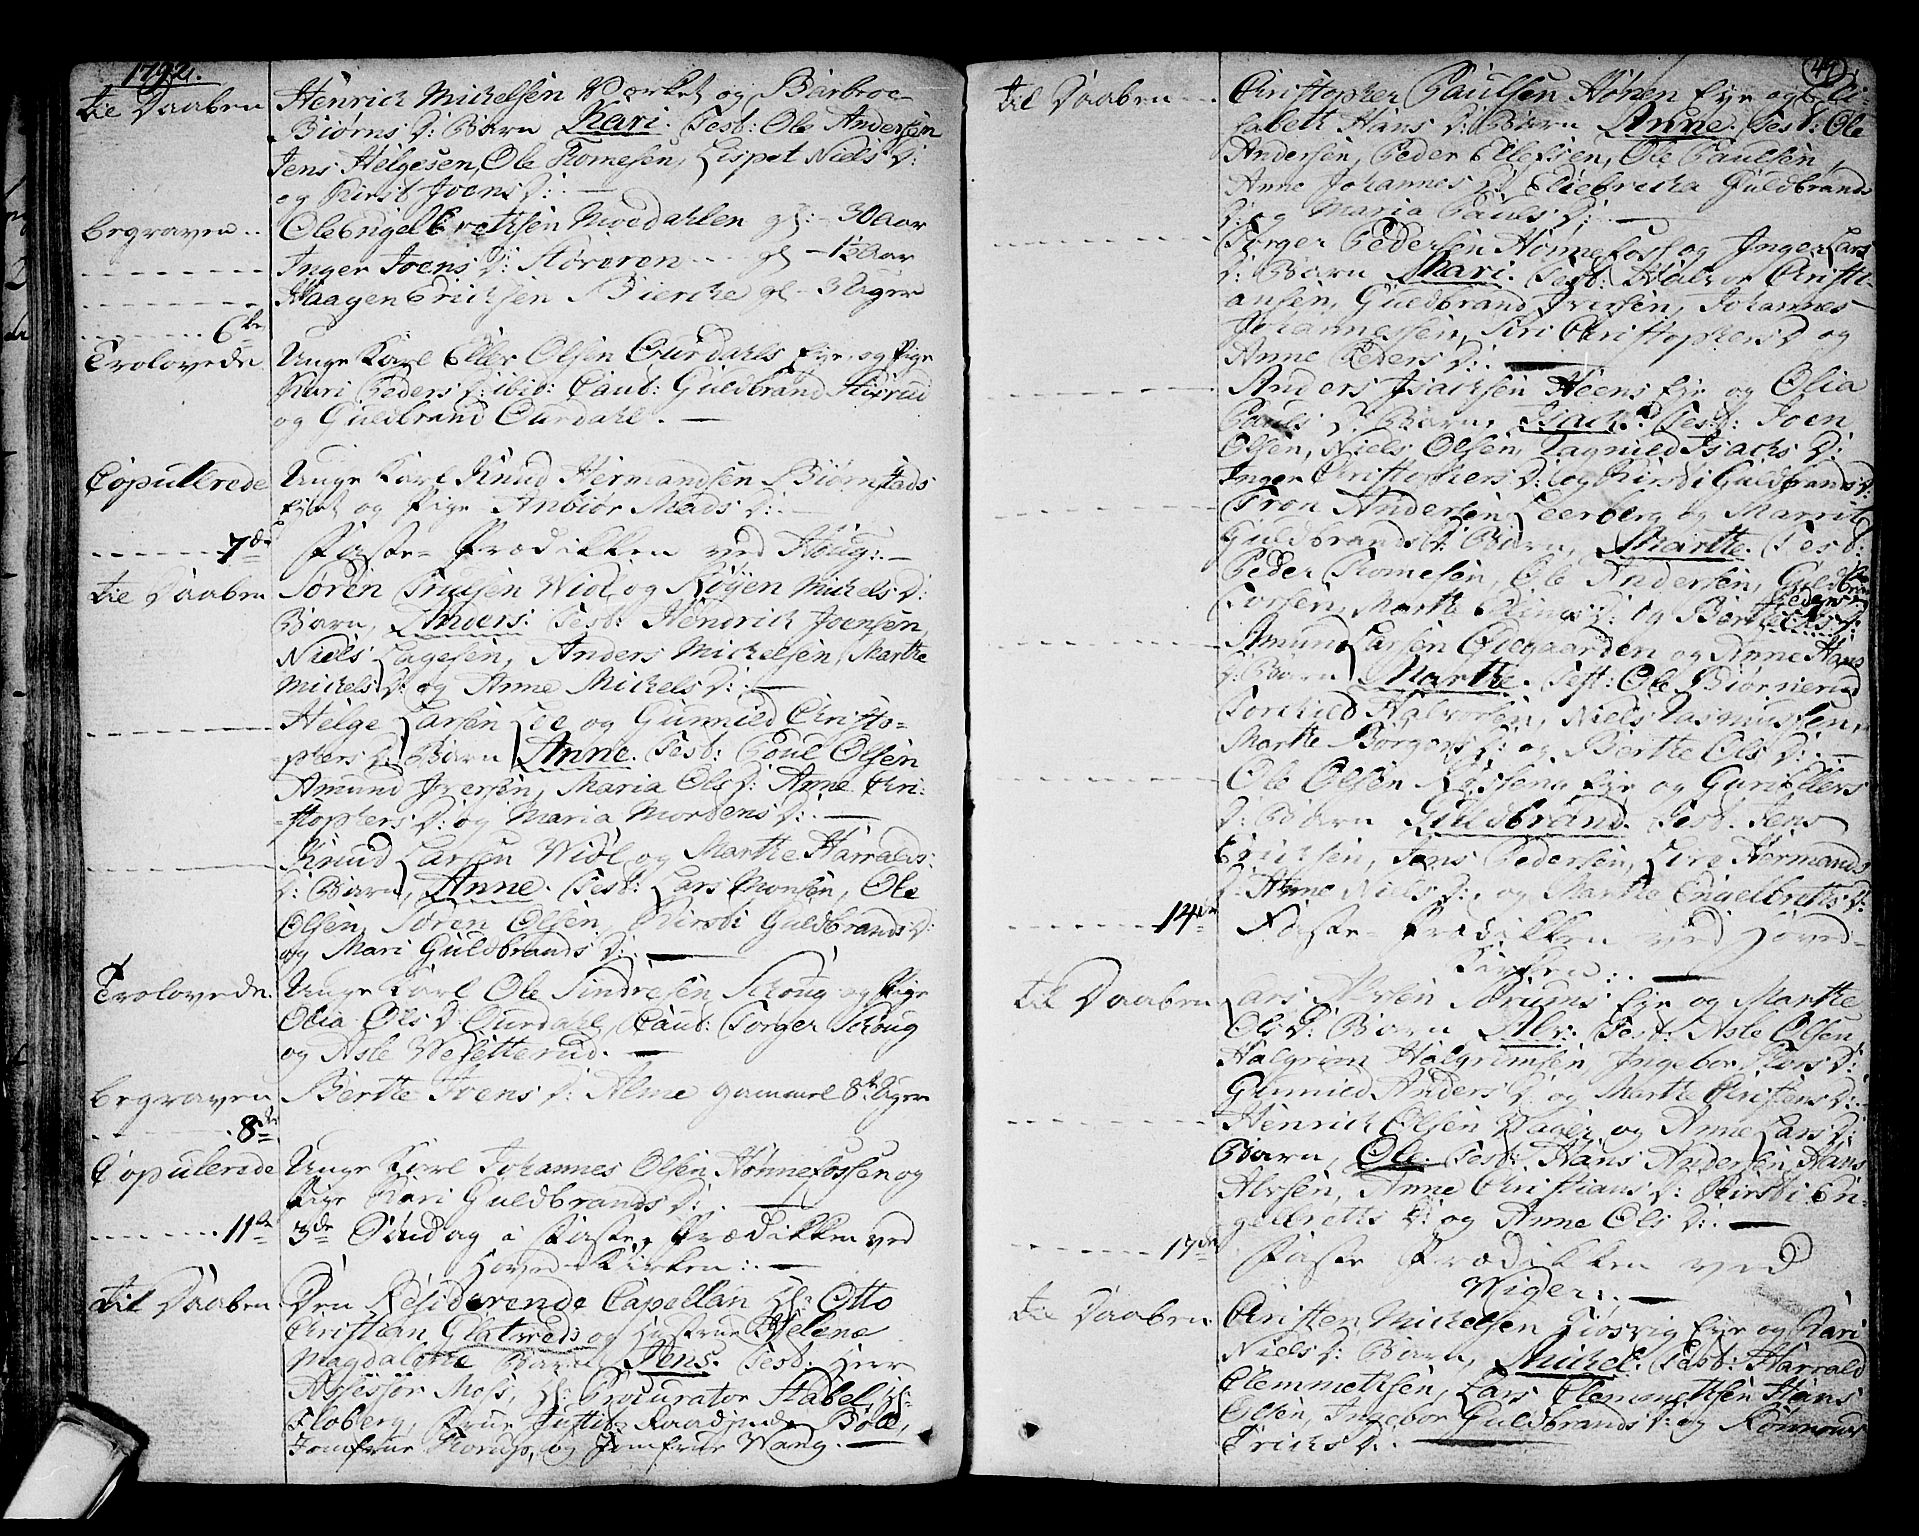 1792.
til Daaben Henrich Michelsen Værket og Barbroe
Biørns D: Barn Kari. Test: Ole Andersen
Jens Helgesen, Ole Tomesen, Lispet Niels D:
og Kirst Joens D: —
begraven Ole Engelbrethsen Moedahlen gl: - 30 Aar
Inger Joens D: Støveren gl - 1½ Aar
Haagen Erichsen Bierche gl - 3 Uger
6te
Trolovede Unge Karl Elley Olsen Ourdahls Eye og Pige
Kari Peders D: ibid: Caut: Guldbrand
og Guldbrand Ourdahl. —
Copullerede Unge Karl Knud Hermandsen Biørnstads
Eiet og Pige Anbiør Mads D: —
7de Faste-Prædikken ved Houg: —
til Daaben Søren Truelsen Wiol og Røyen Michels D:
Barn, Anders. Test: Hendrich Joensen
Niels Lagesen, Anders Michelsen, Marthe
Michels D: og Anne Michels D: —
Helge Larsen Lee og Gunnild Christo-
phers D: Barn Anne. Test: Poul Olsen
Amund Iversen, Maria Ols D: Anne Chri-
stophers D: og Maria Mordens D: —
Knud Larsen Wiol og Marthe Harralds
D: Barn, Anne. Test: Lars Monsen, Ole
Olsen, Søren Olsen, Kirsti Guldbrands D:
og Mari Guldbrands D: —
Trolovede Unge Karl Ole Sindresen Schoug og Pige
Olia Ols D: Ourdahl, Caut: Torger Schoug
og Asle Wesetterud. —
begraven Berthe Joens D: Alme gammel 8te Uger
8de
Copulerede Unge Karl Johannes Olsen Hønnefossen og
Pige Kari Guldbrands D: —
11te 3de Søndag i Faste, Prædikken ved
Hoved-Kirken: —
til Daaben Den Residerende Capellan Hr: Otto
Christian Glatved og Hustrue Helene
Magdalene Barn Jens. Test: Herr
Assessor Moss, Hr: Procurator Stabel, Hr:
Floberg, Frue Justits Raadinde Boll,
Jomfrue Thorup, og Jomfrue Wang. —
49
til Daaben Christopher Paulsen Hønen Eye og Eli-
sabeth Hans D: Barn Anne. Test: Ole
Andersen, Peder Ellefsen, Ole Paulsen,
Anne Johannes D: Eliebrecha Guldbrands
D: og Maria Pauls D: —
Torger Pedersen Hønnefoss og Inger Lars
D: Barn Mari. Test: Halvor Christi-
ansen, Guldbrand Iversen, Johannes
Johannessen, Siri Christophers D: og
Anne Peders D: —
Anders Isachsen Heens Eye og Olia
Pauls D: Barn, Isach. Test: Joen
Olsen, Niels Olsen, Tagnild Isachs D:
Inger Christophers D: og Kirsti Guldbrands D:
Tron Andersen Leerberg og Marrit
Guldbrands D: Barn, Marthe. Test:
Peder Tomesen, Ole Andersen, Guldbrand
Torsen, Marthe D: og Berthe Peders D:
Amund Larsen Ødegaarden og Anne Hans
D: Barn Marthe. Test: Ole Biørnerud
Torchild Halvorsen, Niels Rasmussen,
Marthe Borgers D: og Berthe Ols D: —
Ole Olsen Eye og Guri Ellers
D: Barn Guldbrand. Test: Jens
Erichsen, Jens Pedersen, Live Hermands
D: Anne Niels D:, og Marthe Engelbreths D:
14de Faste-Prædikken ved Hoved-
Kirken: —
til Daaben Lars Alvsen Sørums Eye og Marthe
Ols D: Barn Alv. Test: Asle Olsen,
Halgrim Halgrimsen, Ingebor D:
Gunnild Anders D: og Marthe Christens D:
Henrich Olsen Wager og Anne Lars D:
Barn, Ole. Test: Hans Andersen, Hans
Alvsen, Anne Christians D: Kirsti En-
gelbreths D: og Anne Ols D: —
17de Faste Prædikken ved
Wiger: —
til Daaben Christen Michelsen Eye og Kari
Niels D: Barn, Michel. Test: Harrald
Clemmethsen, Lars Clemmethsen Hans
Olsen, Ingebor Guldbrands D: og Rønnoug
Erichs D: —